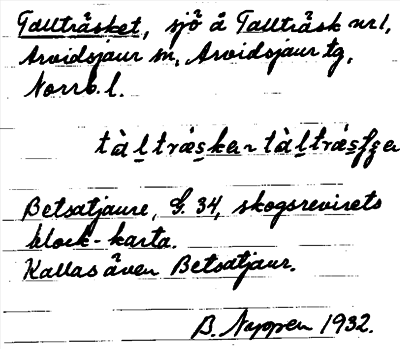 Tallträsket, sjö å Tallträsk nr 1,
Arvidsjaur sn, Arvidsjaur tg,
Norrb. l.
tàlträsken tàlträsʃʃen
Betsatjaure, G. 34, skogsrevirets
block-karta.
Kallas även Betsatjaur.
B. Nyppen 1932.